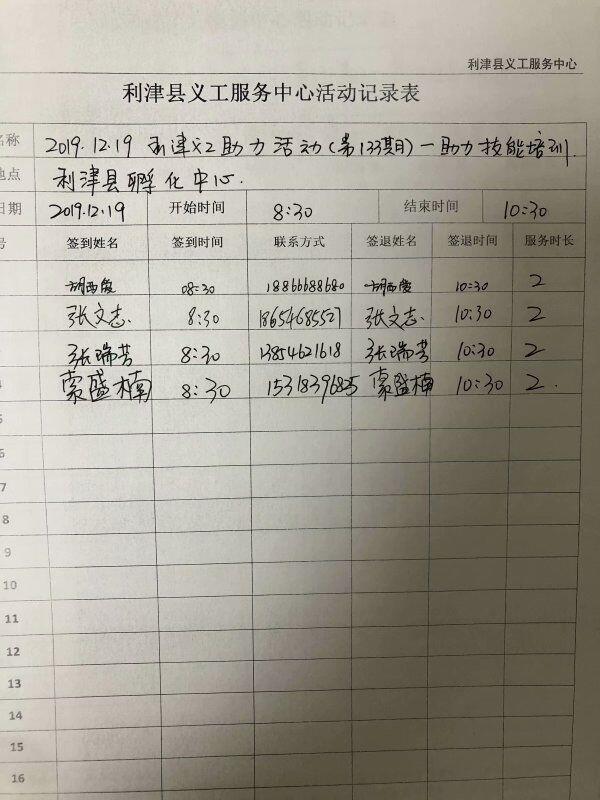 利津县义工服务中心
利津县义工服务中心活动记录表
名称 2019.12.19 利津义工助力活动(第133期)一助力技能培训.
地点 利津县孵化中心.
日期 2019.12.19 开始时间 8:30 结束时间 10:30
号 签到姓名 签到时间 联系方式 签退姓名 签退时间 服务时长
08:30 18866688680 10:30 2
张文志 8:30 18654685527 张文志 10:30 2
张瑞芳 8:30 13854621618 张瑞芳 10:30 2
4 蒙盛楠 8:30 15318396825 蒙盛楠 10:30 2.
5
6
7
8
9
10
11
12
13
14
15
16